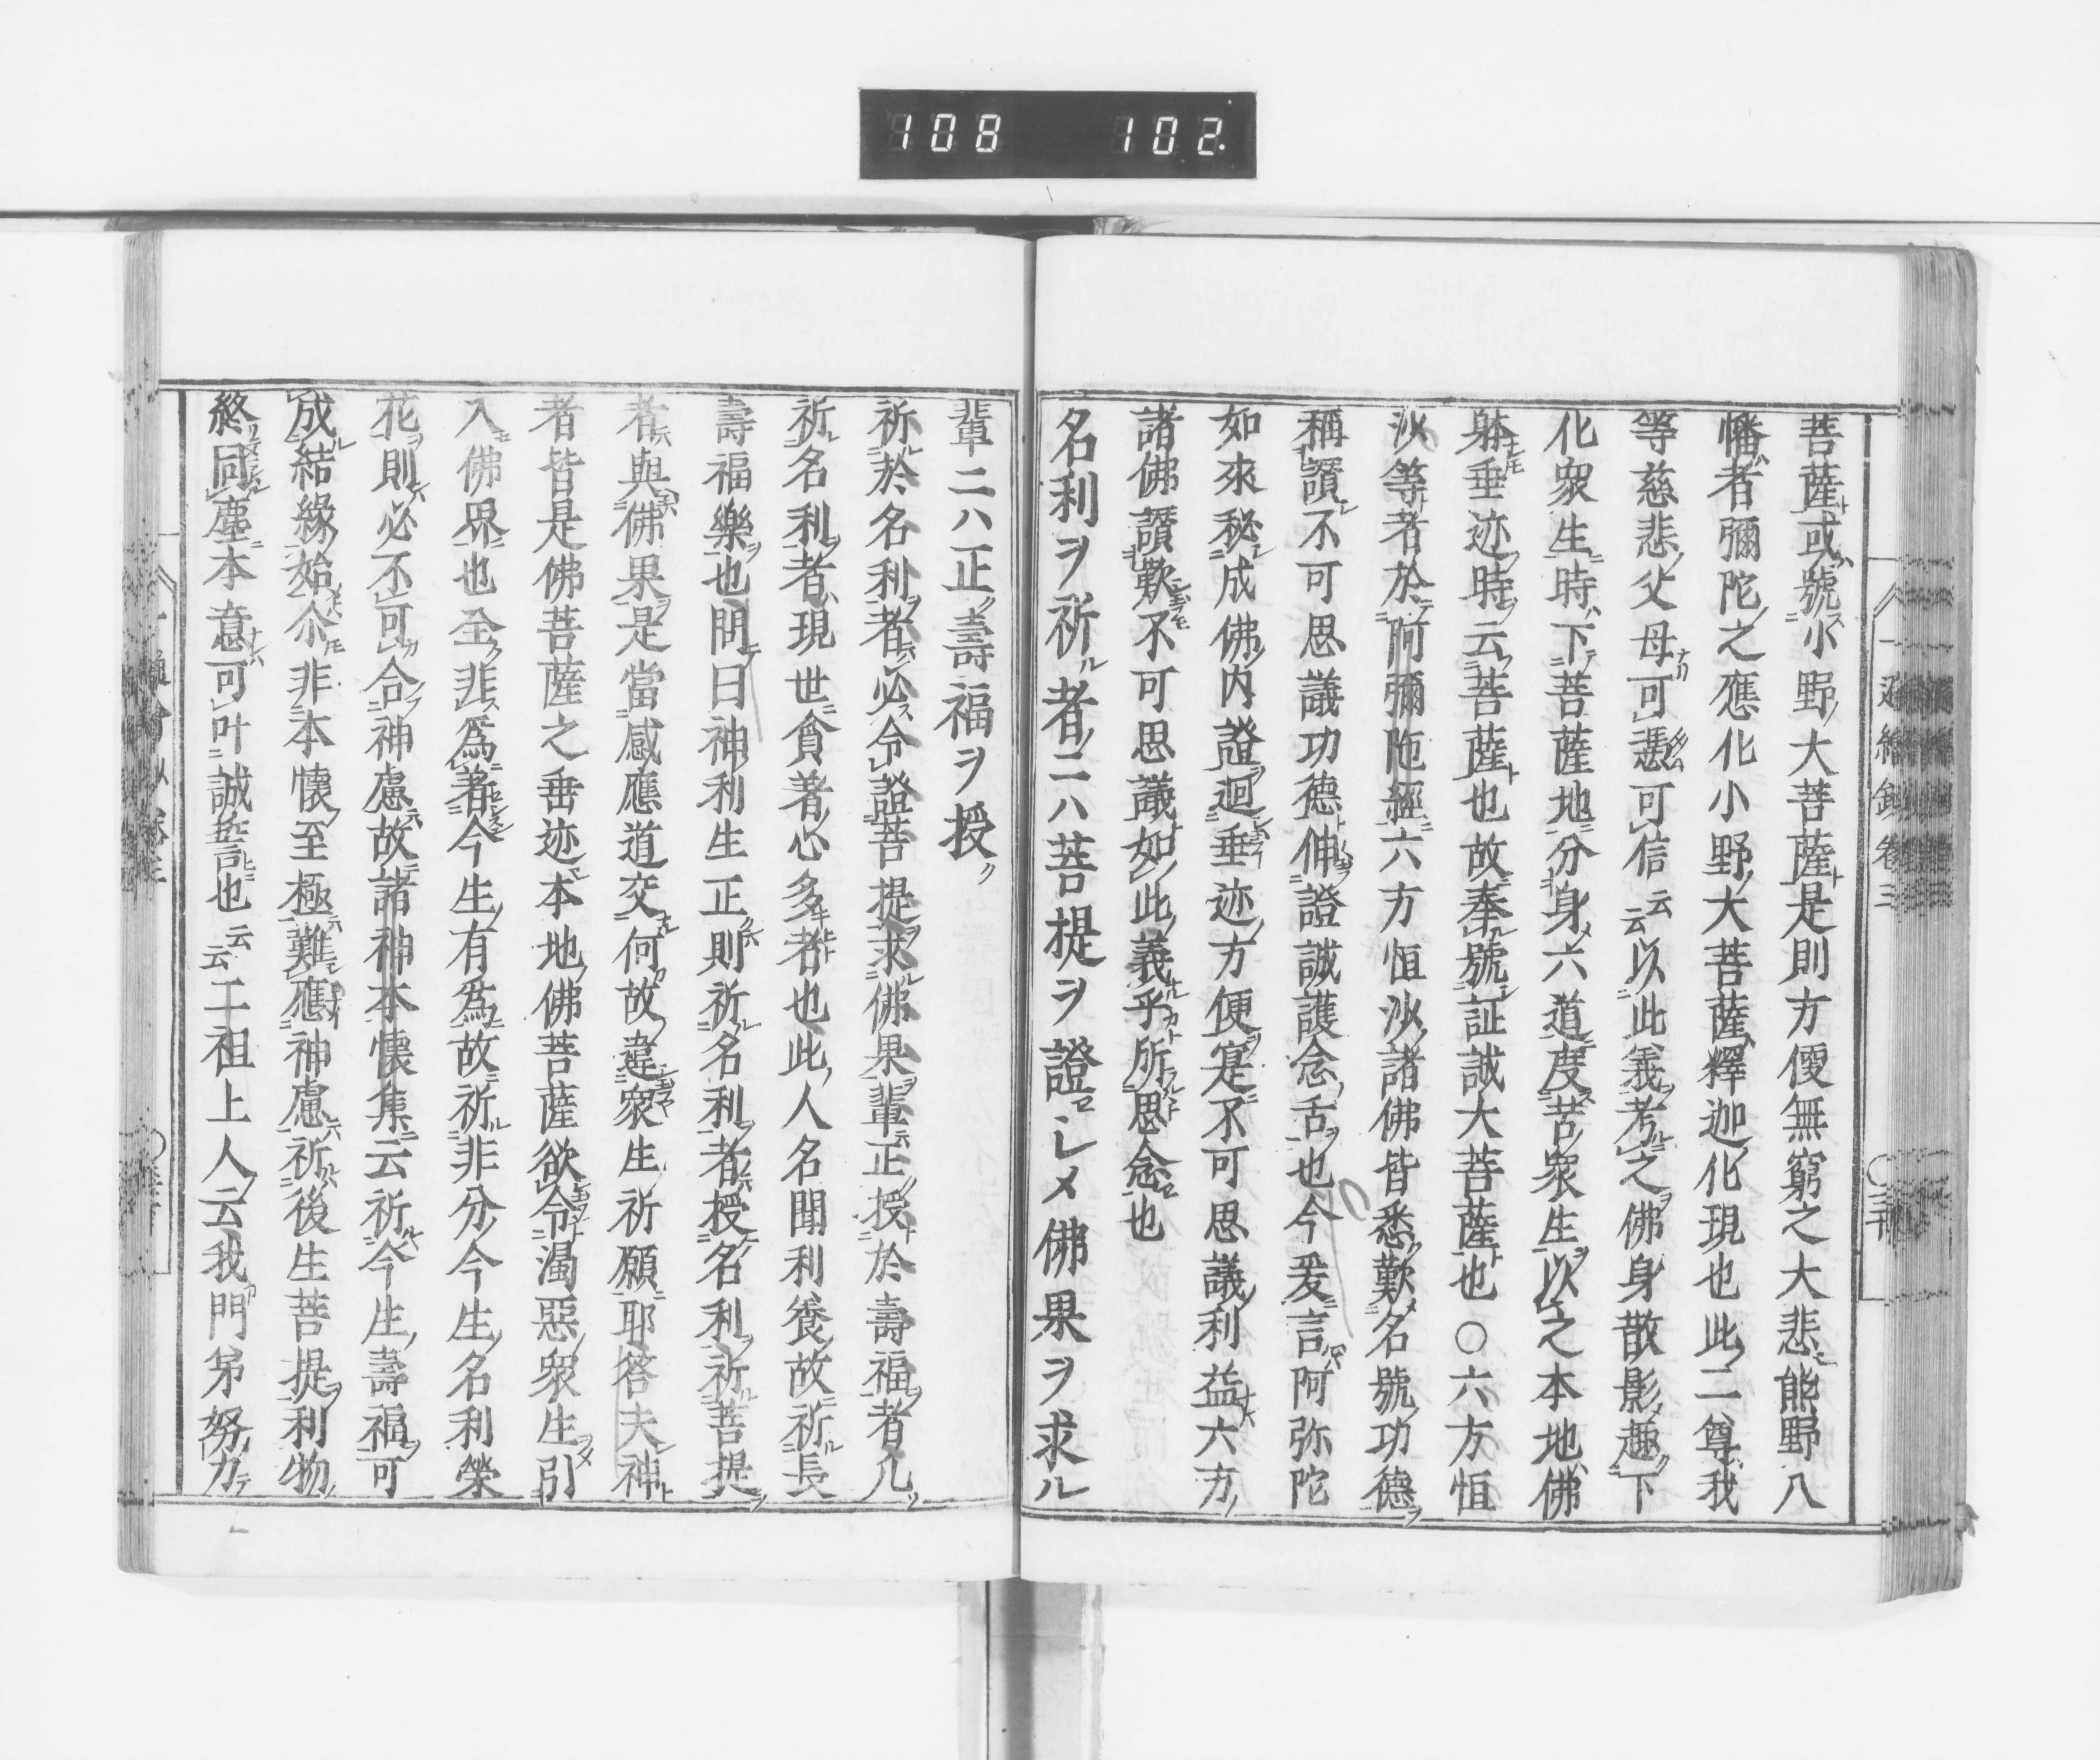 108 102.
菩薩或號小野大菩薩是則方便無窮之大悲熊野八
幡者彌陀之應化小野大菩薩釋迦化現也此二尊我
等慈悲父母可憑可信云云以此義考之佛身散影趣下
化衆生時下菩薩地分身六道度苦衆生以之本地佛
躰垂迹時云菩薩也故奉號証誠大菩薩也○六方恒
沙等者於阿彌陀經六方恒沙諸佛皆悉歎名號功德
稱讚不可思議功德伸證誠護念舌也今爰言阿弥陀
如來秘成佛內證迴垂迹方便寔不可思議利益六方
諸佛讚歎不可思議如此義乎所思念也
名利ヲ祈ル者ニハ菩提ヲ證セシメ佛果ヲ求ル
輩ニハ正ノ壽福ヲ授ク
祈於名利者必令證菩提求佛果輩正授於壽福者凡
祈名利者現世貪著心多者也此人名聞利養故祈長
壽福樂也問曰神利生正則祈名利者授名利祈菩提
者與佛果是當感應道交何故違衆生祈願耶答夫神
者皆是佛菩薩之垂迹本地佛菩薩欲令濁惡衆生引
入佛界也全非爲著今生有爲故祈非分今生名利榮
花則必不可合神慮故諸神本懷集云祈今生壽福可
成結緣始尒非本懷至極難應神慮祈後生菩提利物
終同塵本意可叶誠誓也云云二祖上人云我門弟努力
一遍繪鈔卷三